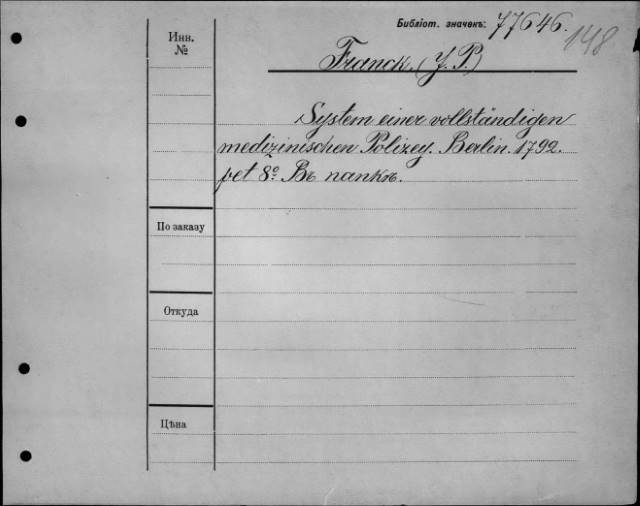 Библіот. значекъ: 77646.
148
Инв.
№
Franck, (J. P.)
System einer vollständigen
medizinischen Polizey. Berlin. 1792.
pet 8º. Въ папкѣ.
По заказу
Откуда
Цѣна